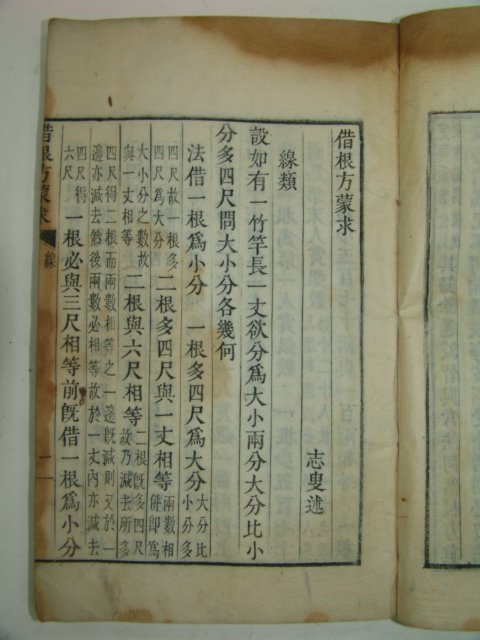 借根方蒙求
志叟述
線類
設如有一竹竿長一丈欲分爲大小兩分大分比小
分多四尺問大小分各幾何
法借一根爲小分 一根多四尺爲大分大分比小分多
四尺故一根多四尺爲大分二根多四尺與一丈相等兩數相併即爲
大小分之數故與一丈相等二根與六尺相等二根旣多四尺故乃減去所多
四尺得二根而兩數相等之一邊旣減則又於一
邊亦減去然後兩數必相等故於一丈內亦減去
四尺得六尺一根必與三尺相等前旣借一根爲小分
借根方蒙求 線 一